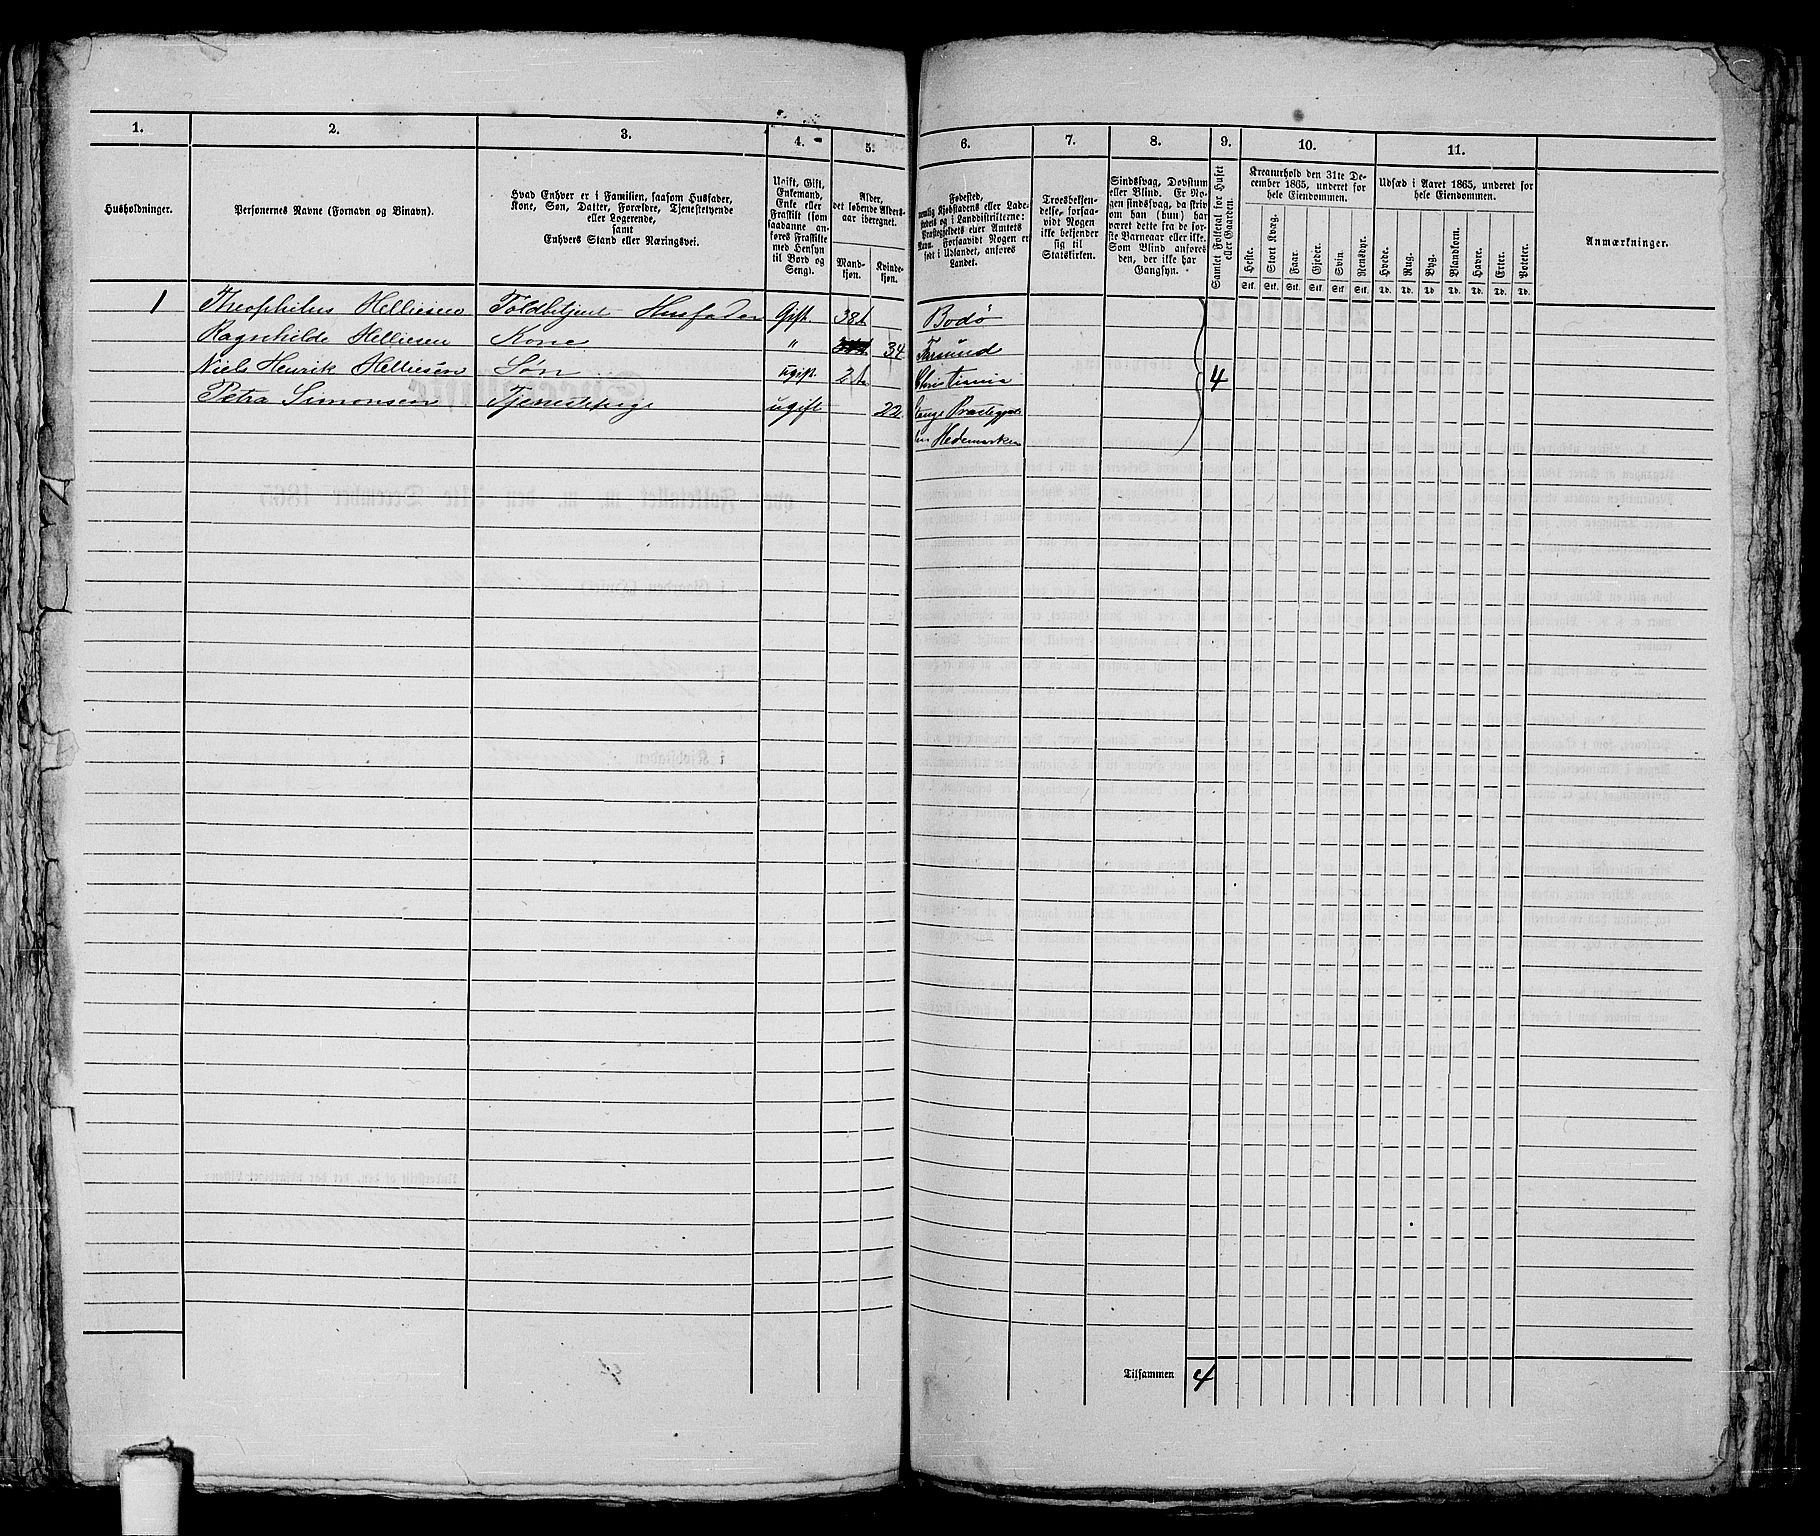 1. 2. 3. 4. 5. 6. 7. 8. 9. 10. 11.
Husholdninger.
Personernes Navne (Fornavn og Binavn).
Hvad Enhver er i Familien, saasom Husfader,
Kone, Søn, Datter, Forældre, Tjenestetyende
eller Logerende,
samt
Enhvers Stand eller Næringsvei.
Ugift, Gift,
Enkemand,
Enke eller
Fraskilt (som
saadanne an-
føres Fraskilte
med Hensyn
til Bord og
Seng).
Alder,
det løbende Alders-
aar iberegnet.
Mand-
kjøn.
Kvinde-
kjøn.
Fødested,
nemlig Kjøbstadens eller Lade-
stedets og i Landdistrikterne:
Præstegjeldets eller Amtets
Navn. Forsaavidt Nogen er
født i Udlandet, anføres
Landet.
Troesbekjen-
delse, forsaa-
vidt Nogen
ikke bekjender
sig til
Statskirken.
Sindssvag, Døvstum
eller Blind. Er No-
gen sindssvag, da skriv
om han (hun) har
været dette fra de før-
ste Barneaar eller ikke.
Som Blind anføres
den, der ikke har
Gangsyn.
Samlet Folketal for Huset
eller Gaarden.
Kreaturhold den 31te De-
cember 1865, underet for
hele Eiendommen.
Heste. Stort Kvæg. Faar. Gjeder. Svin. Rensdyr.
Stk. Stk. Stk. Stk. Stk. Stk.
Udsæd i Aaret 1865, underet for
hele Eiendommen.
Hvede. Rug. Byg. Blandkorn. Havre. Erter. Poteter.
Td. Td. Td. Td. Td. Td. Td.
Anmærkninger.
1 Theophilus Helliesen Toldbetjent Husfader Gift 38 Bodø
Ragnhilde Helliesen Kone " 34 Farsund
Niels Henrik Helliesen Søn ugift 2 Christiania 4
Petra Simonsen Tjenestepige ugift 22 Stange Præstegjeld
Hedemarken
Tilsammen 4